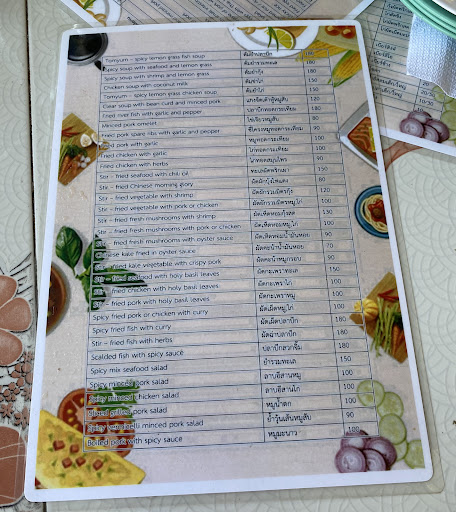 Tomyum – spicy lemon grass fish soup
Spicy soup with seafood and lemon grass
Spicy soup with shrimp and lemon grass
Chicken soup with coconut milk
Tomyum – spicy lemon grass chicken soup
Clear soup with bean curd and minced pork
Fried river fish with garlic and pepper
Minced pork omelet
Fried pork spare ribs with garlic and pepper
pork with garlic
Fried chicken with garlic
Fried chicken with herbs
Stir – fried seafood with chili oil
Stir – fried Chinese morning glory
Stir – fried vegetable with shrimp
Stir – fried vegetable with pork or chicken
Stir – fried fresh mushrooms with shrimp
Stir – fried fresh mushrooms with pork or chicken
Stir – fried fresh mushrooms with oyster sauce
Chinese kale fried in oyster sauce
Stir – fried kale vegetable with crispy pork
Stir – fried seafood with holy basil leaves
Stir – fried chicken with holy basil leaves
Stir – fried pork with holy basil leaves
Spicy fried pork or chicken with curry
Spicy fried fish with curry
Stir – fried fish with herbs
Scalded fish with spicy sauce
Spicy mix seafood salad
Spicy minced pork salad
Spicy minced chicken salad
Sliced grilled pork salad
Spicy vermicelli minced pork salad
Boiled pork with spicy sauce
ต้มยำปลาบึก
ต้มยำรวมทะเล 180
ต้มยำกุ้ง 180
ต้มข่าไก่ 150
ต้มยำไก่ 150
แกงจืดเต้าหู้หมูสับ 120
ปลาบึกทอดกระเทียม 180
ไข่เจียวหมูสับ 80
ซี่โครงหมูทอดกระเทียม 90
หมูทอดกระเทียม 100
ไก่ทอดกระเทียม 100
ไก่ทอดสมุนไพร 90
ทะเลผัดพริกเผา 150
ผัดผักบุ้งไฟแดง 80
ผัดผักรวมมิตรกุ้ง 120
ผัดผักรวมมิตรหมู,ไก่ 100
ผัดเห็ดหอมกุ้งสด 130
ผัดเห็ดหอมหมู,ไก่ 100
ผัดเห็ดหอมน้ำมันหอย 90
ผัดคะน้าน้ำมันหอย 70
ผัดคะน้าหมูกรอบ 90
ผัดกะเพราทะเล 150
ผัดกะเพราไก่ 100
ผัดกะเพราหมู 100
ผัดเผ็ดหมู,ไก่ 100
ผัดเผ็ดปลาบึก 180
ผัดฉ่าปลาบึก 180
ปลาบึกลวกจิ้ม 180
ยำรวมทะเล 150
ลาบอีสานหมู 100
ลาบอีสานไก่ 100
หมูน้ำตก 100
ยำวุ้นเส้นหมูสับ 90
หมูมะนาว 100